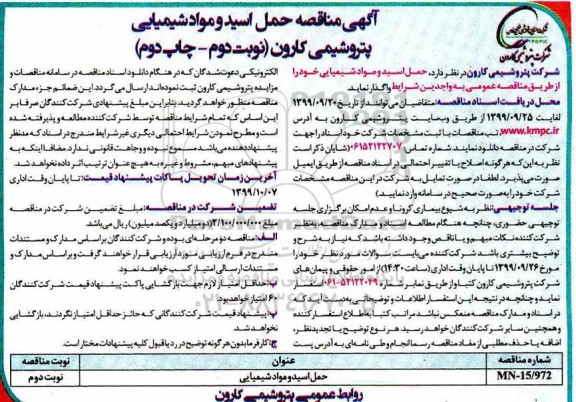 آگهی مناقصه حمل اسید و مواد شیمیایی
پتروشیمی کارون (نوبت دوم - چاپ دوم)
شرکت پتروشیمی کارون
شرکت پتروشیمی کارون در نظر دارد، حمل اسید و مواد شیمیایی خود را
از طریق مناقصه عمومی به واجدین شرایط واگذار نماید.
محل دریافت اسناد مناقصه: متقاضیان می‌توانند از تاریخ ۱۳۹۹/۰۹/۲۰
لغایت ۱۳۹۹/۰۹/۲۵ از طریق وب‌سایت پتروشیمی کارون به آدرس
www.krnpc.ir، تب مناقصات با ثبت مشخصات شرکت خود اسناد را جهت
شرکت در مناقصه دانلود نمایند. شماره تماس: ۰۶۱۵۲۱۲۲۷۰۷ (شایان ذکر است
نظر به این که هرگونه اصلاح یا تغییر احتمالی در اسناد مناقصه از طریق ایمیل
صورت می‌پذیرد، لطفا در صورت تمایل به شرکت در این مناقصه مشخصات
شرکت خود را به صورت صحیح در سامانه وارد نمایند.)
جلسه توجیهی: نظر به شیوع بیماری کرونا و عدم امکان برگزاری جلسه
توجیهی حضوری، چنانچه هنگام مطالعه اسناد و مدارک مناقصه به منظور
شرکت‌کننده نکات مبهم و یا ناقص وجود داشته باشد که نیاز به شرح و
توضیح بیشتری باشد شرکت‌کننده می‌بایست سوالات مورد نظر خود را
مورخ ۱۳۹۹/۰۹/۲۶ تا پایان وقت اداری (ساعت ۱۴:۳۰) از امور حقوقی و پیمان‌های
شرکت پتروشیمی کارون کتبا و از طریق نمابر شماره ۰۶۱-۵۲۱۲۲۰۴۹ استفسار
نماید و چنانچه در نتیجه این استفسار اطلاعات و توضیحاتی به دست آید که
در اسناد و مدارک مناقصه منعکس نباشد مراتب کتبا به اطلاع استفسارکننده
و همچنین سایر شرکت‌کنندگان خواهد رسید. هر نوع توضیح یا تجدیدنظر،
اضافه یا حذف مطلبی از مفاد مناقصه رسما انجام و طی نامه‌ای به آدرس پست
الکترونیکی دعوت‌شدگان که در هنگام دانلود اسناد مناقصه در سامانه مناقصات و
مزایده پتروشیمی کارون ثبت نموده‌اند ارسال می‌گردد. این ضمائم جزء مدارک
مناقصه منظور خواهد گردید بنابراین مبلغ پیشنهادی شرکت‌کنندگان صرفا بر
این اساس که تمام شرایط مناقصه توسط شرکت‌کننده مطالعه و پذیرفته شده
است و مطرح نمودن شرایط احتمالی دیگری غیر شرایط مندرج در اسناد که مدنظر
پیشنهاددهنده می‌باشد، ممنوع بوده و وجاهت قانونی ندارد مضافا اینکه به
پیشنهادهای مبهم، مشروط و غیره به هیچ عنوان ترتیب اثر داده نخواهد شد.
آخرین زمان تحویل پاکات پیشنهاد قیمت: تا پایان وقت اداری
۱۳۹۹/۱۰/۰۷
تضمین شرکت در مناقصه: مبلغ تضمین شرکت در مناقصه
۲/۱۰۰/۰۰۰/۰۰۰ (دو میلیارد و یکصد میلیون) ریال می‌باشد.
الف: مناقصه دو مرحله‌ای بوده و شرکت‌کنندگان بر اساس مدارک و مستندات
مندرج در فرم ارزیابی مورد ارزیابی قرار خواهند گرفت و بر اساس مدارک و
مستندات ارسالی امتیاز کسب خواهند نمود.
ب: حداقل امتیاز لازم جهت بازگشایی پاکت پیشنهاد قیمت شرکت‌کنندگان
۶۰ امتیاز خواهد بود.
پ: پیشنهاد قیمت شرکت‌کنندگانی که حائز حداقل امتیاز نگردند، بازگشایی
نخواهد شد.
ج: کارفرما بدون هر گونه توضیح در رد یا قبول کلیه پیشنهادات مختار است.
شماره مناقصه عنوان نوبت مناقصه
MN-15/972 حمل اسید و مواد شیمیایی نوبت دوم
روابط عمومی پتروشیمی کارون